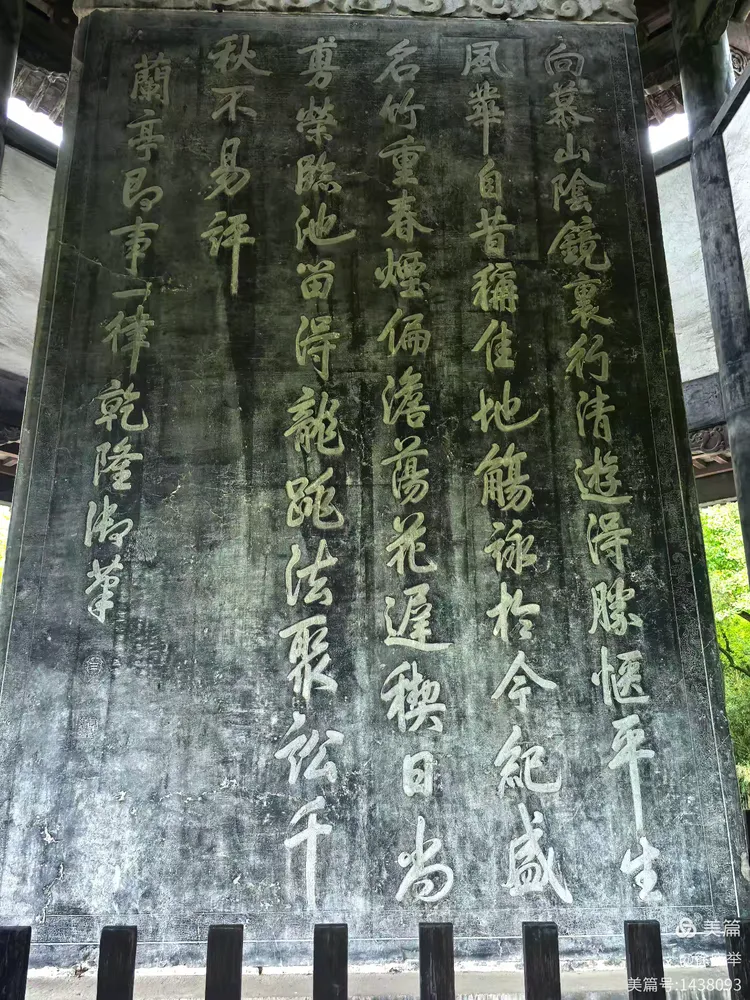 向慕山陰鏡裏行清遊得勝愜平生
風華自昔稱佳地觴詠於今紀盛
名竹重春煙偏澹蕩花遲禊日尚
旉榮臨池留得龍跳法聚訟千
秋不易評
蘭亭即事一律乾隆御筆
美篇
美篇号:1438093